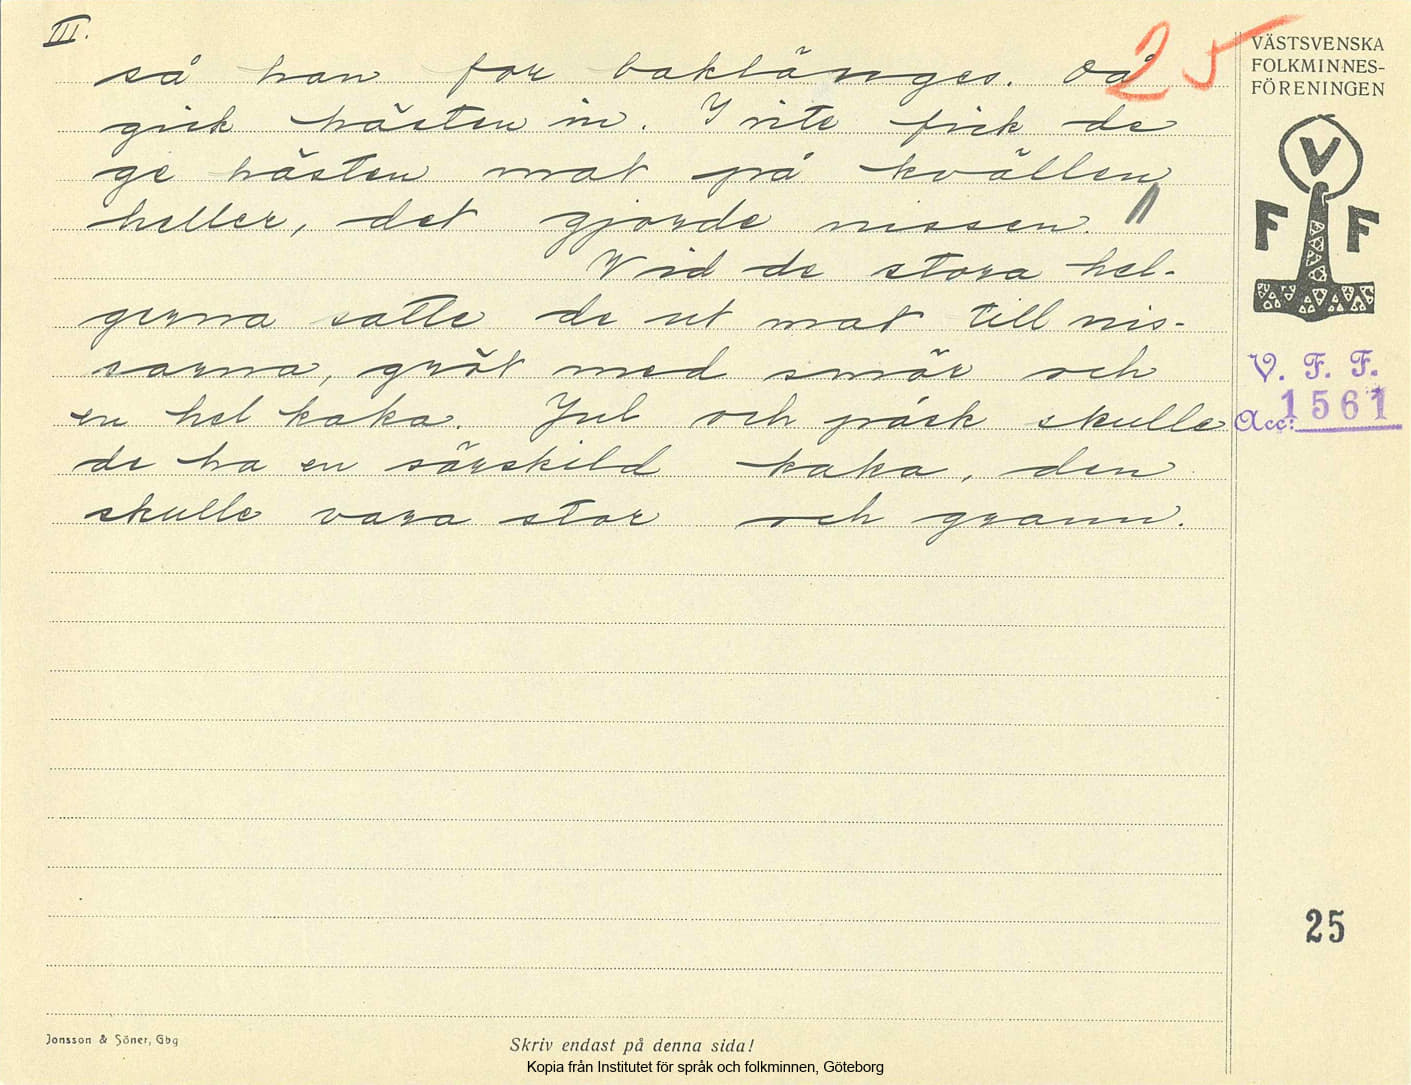 III.
25
så han for baklänges. Då
gick hästen in. I vite fick de
ge hästen mat på kvällen
heller, det gjorde nissen."
Vid de stora hel-
gerna satte de ut mat till nis-
sarna, gröt med smör och
en hel kaka. Jul och påsk skulle
de ha en särskild kaka, den
skulle vara stor och grann.
VÄSTSVENSKA
FOLKMINNES-
FÖRENINGEN
V
F F
V. F. F.
Acc: 1561
25
Jonsson & Söner, Gbg
Skriv endast på denna sida!
Kopia från Institutet för språk och folkminnen, Göteborg